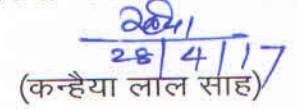 28/4/17
(कन्हैया लाल साह)